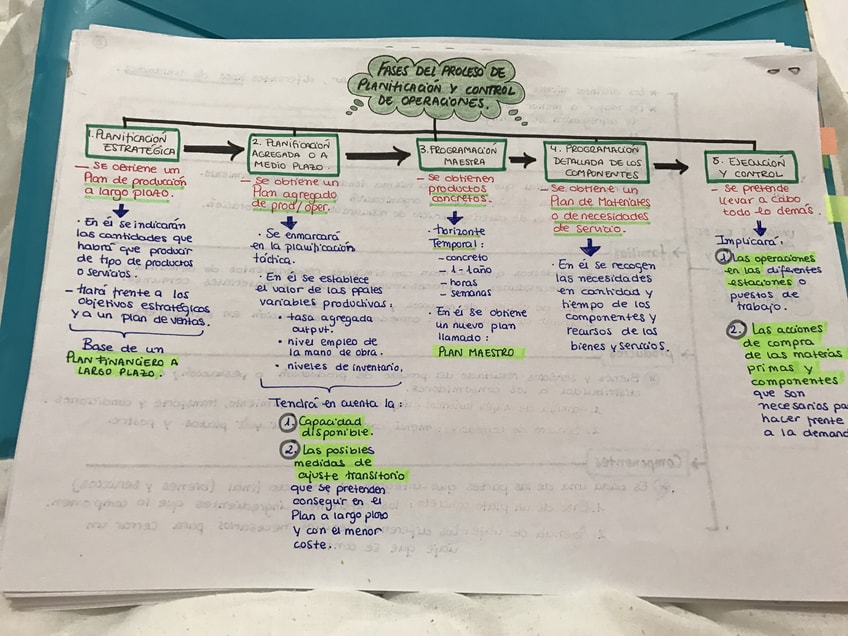 FASES DEL PROCESO DE
PLANIFICACIÓN Y CONTROL
DE OPERACIONES.
1. PLANIFICACIÓN
ESTRATÉGICA
— Se obtiene un
Plan de producción
a largo plazo
· En él se indicarán
las cantidades que
habrá que producir
de tipo de productos
o servicios.
— Hará frente a los
objetivos estratégicos
y a un plan de ventas.
Base de un
PLAN FINANCIERO A
LARGO PLAZO.
2. PLANIFICACIÓN
AGREGADA O A
MEDIO PLAZO
— Se obtiene un
Plan agregado
de prod/oper.
· Se enmarcará
en la planificación
táctica.
· En él se establece
el valor de las ppales
variables productivas:
· tasa agregada
output.
· nivel empleo de
la mano de obra.
· niveles de inventario.
Tendrá en cuenta la:
1. Capacidad
disponible.
2. Las posibles
medidas de
ajuste transitorio
que se pretenden
conseguir en el
Plan a largo plazo
y con el menor
coste.
3. PROGRAMACIÓN
MAESTRA
— Se obtienen
productos
concretos.
· Horizonte
Temporal:
- concreto
- 1 - año
- horas
- semanas
· En él se obtiene
un nuevo plan
llamado:
PLAN MAESTRO
4. PROGRAMACIÓN
DETALLADA DE LOS
COMPONENTES
— Se obtiene un
Plan de Materiales
o de necesidades
de servicio.
· En él se recogen
las necesidades
en cantidad y
tiempo de los
componentes y
recursos de los
bienes y servicios.
5. EJECUCIÓN
Y CONTROL
— Se pretende
llevar a cabo
todo lo demás.
Implicará:
1 Las operaciones
en las diferentes
estaciones o
puestos de
trabajo.
2. Las acciones
de compra
de las materias
primas y
componentes
que son
necesarios pa
hacer frente
a la demand